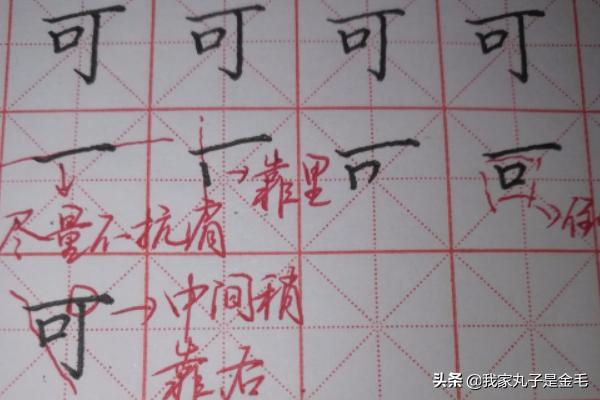 可 可 可 可
靠里
尽量不抗肩
可 中间稍
靠右
头条 @我家丸子是金毛